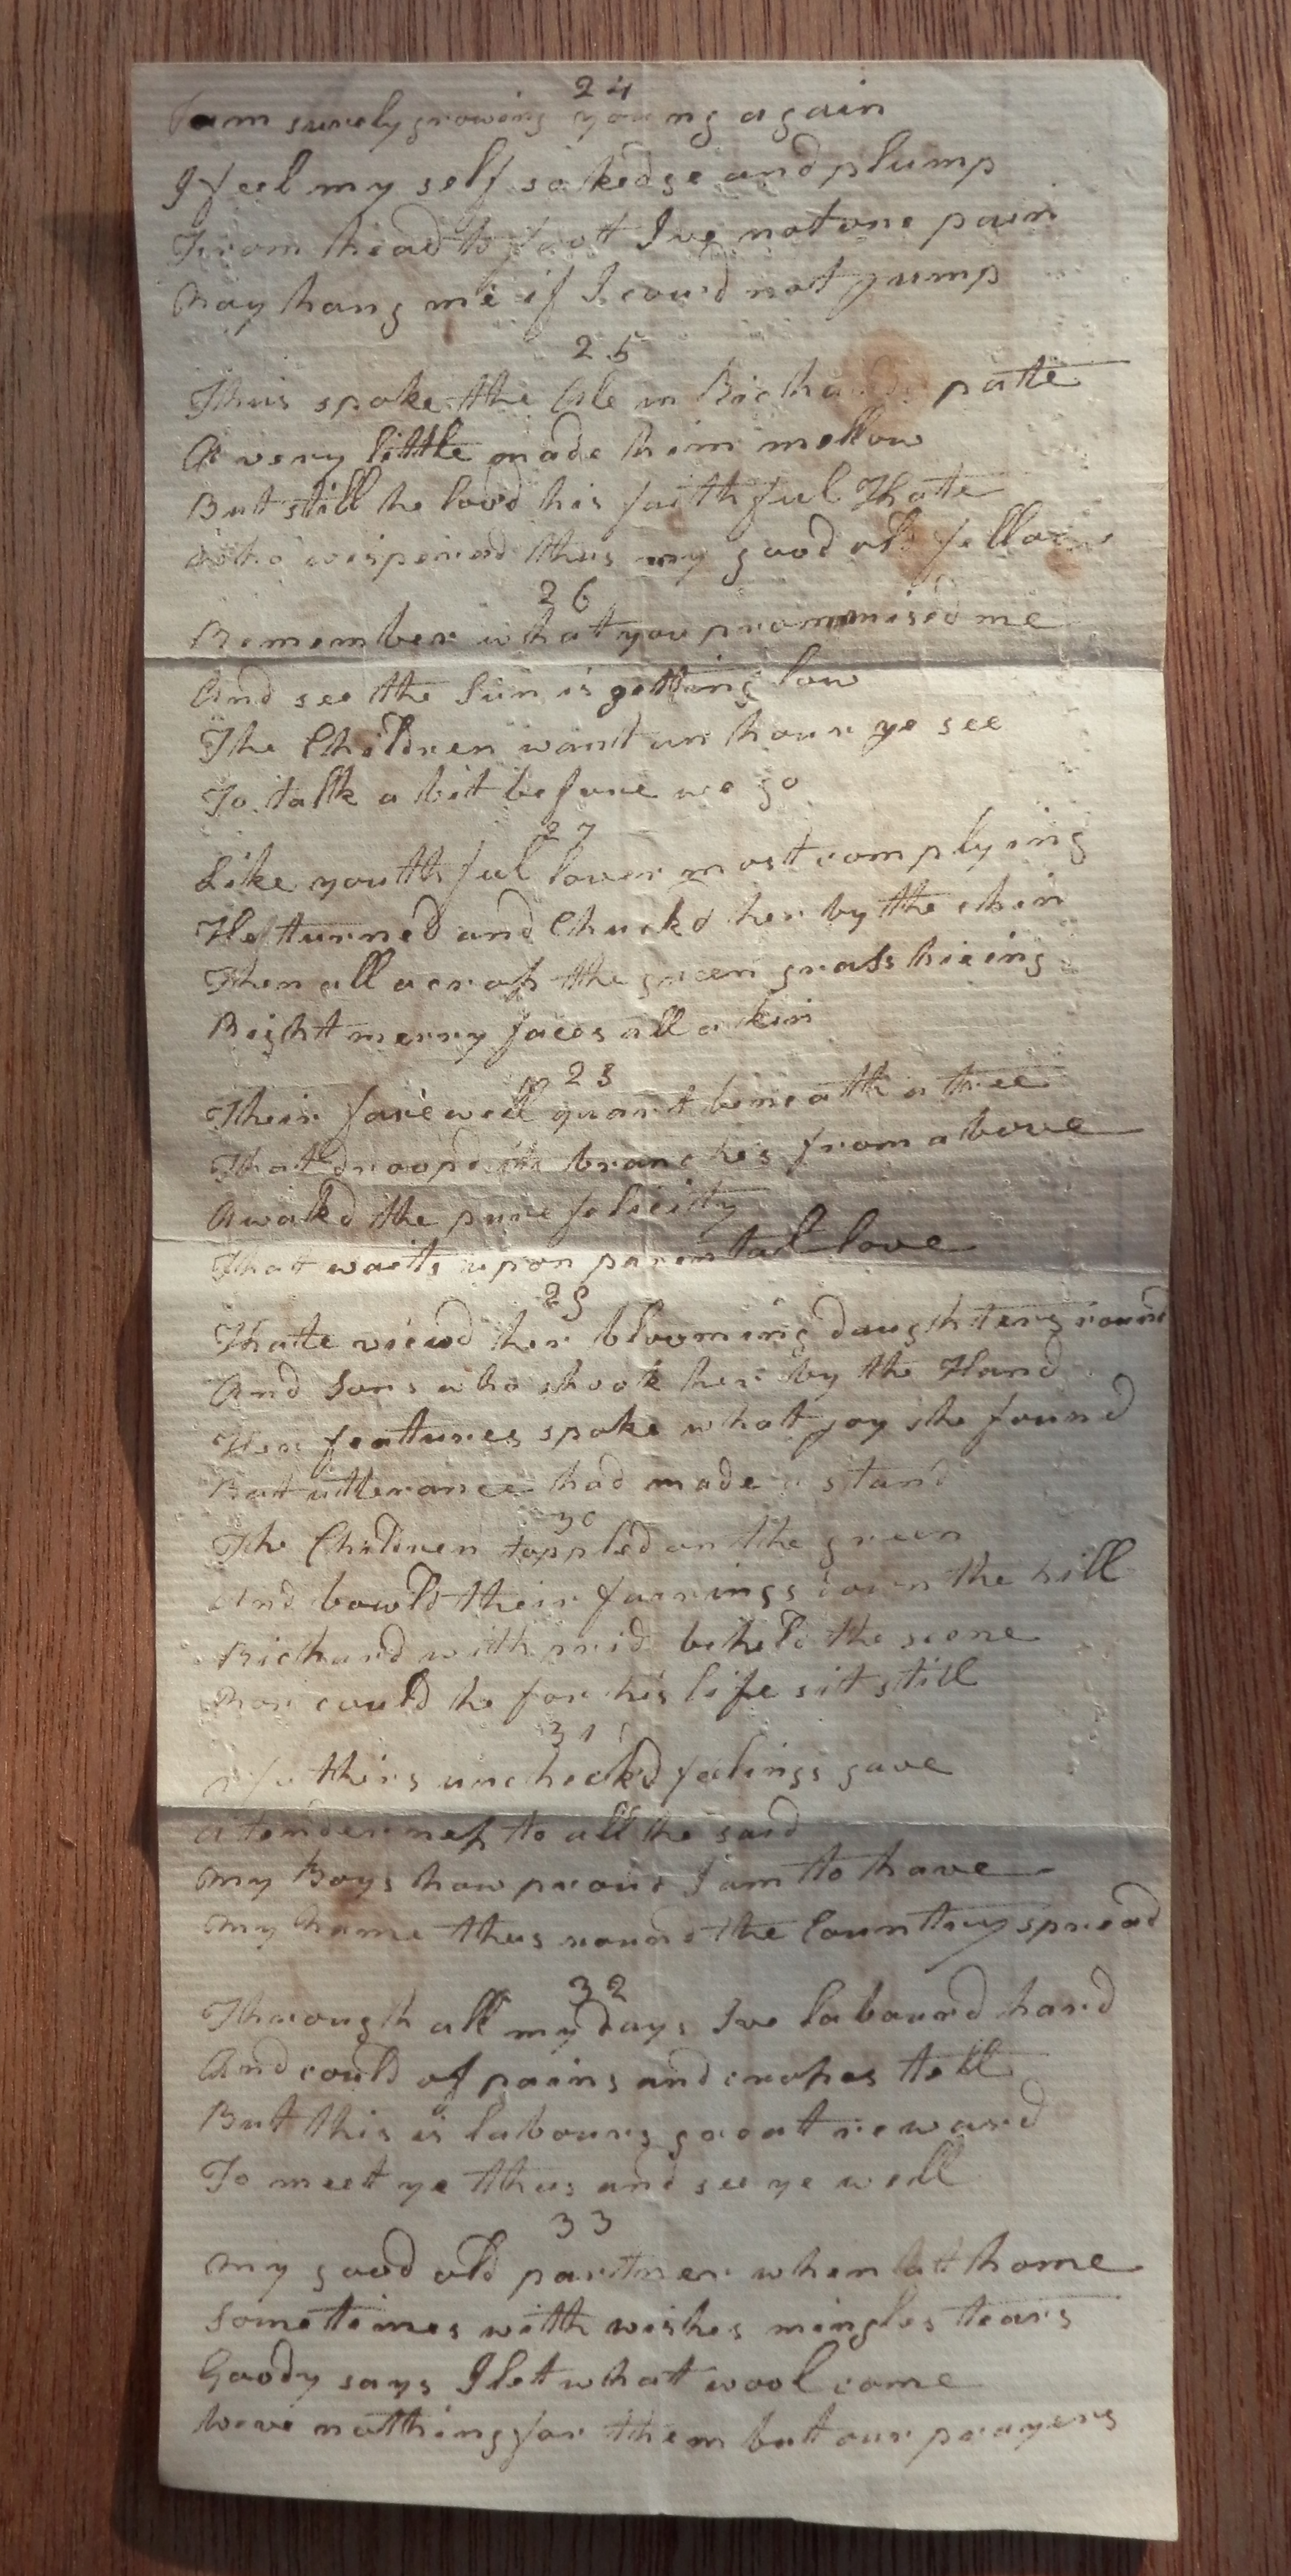 24
I am surely growing young again
I feel my self so kedge and plump
From head to foott Ive not one pain
Nay hang me if I cou'd not jump
25
Thus spoke the Ale in Richards patte
A very little made him mellow
But still he lov'd his faithful Thate
Who wispered thus my good old fellow
26
Remember what you prommised me
And see the Sun is getting low
The Children want an hour ye see
To talk a bit before we go
27
Like youthful lover most complying
He turned and Chuck'd her by the chin
Then all across the green grass hieing
Right merry faces all akin
28
Their farewell quart beneath a tree
That droop'd its branches from above
Awak'd the pure felicitty
That waits upon parental love
29
Thatte view'd her blooming daughters round
And Sons who shook her by the Hand
Her features spoke what joy she found
But utterance had made a stand
30
The Children toppled on the green
And bowld their fairings down the hill
Richard with prid beheld the scene
Nor could he for his life sit still
31
A fathers uncheck'd feelings gave
A tenderness to all he said
My Boys how proud I am to have
My Name thus round the Country spread
32
Through all my days Ive labourd hard
And could of pains and croses tell
But this is labours great reward
To meet ye thus and see ye well
33
My good old partner when at home
Sometimes with wishes mingles tears
Goody says I let what wool come
Weve nothing for them but our prayers